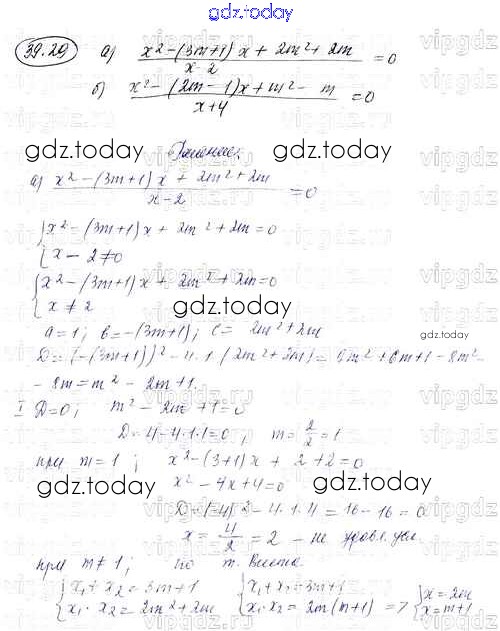 gdz.today
39.29 а) x² - (3m+1)x + 2m² + 2m / x - 2 = 0
б) x² - (2m - 1)x + m² - m / x + 4 = 0
Решение:
gdz.today gdz.today
а) x² - (3m+1)x + 2m² + 2m / x - 2 = 0
{ x² - (3m+1)x + 2m² + 2m = 0
{ x - 2 ≠ 0
gdz.today
{ x² - (3m+1)x + 2m² + 2m = 0
{ x ≠ 2
gdz.today
a = 1; b = -(3m+1); c = 2m² + 2m
gdz.today
D = (-(3m+1))² - 4·1·(2m² + 2m) = 9m² + 6m + 1 - 8m² -
- 8m = m² - 2m + 1.
I D = 0; m² - 2m + 1 = 0
D = 4 - 4·1·1 = 0, m = 2/2 = 1
при m = 1; x² - (3+1)x + 2 + 2 = 0
gdz.today gdz.today
x² - 4x + 4 = 0
D = (-4)² - 4·1·4 = 16 - 16 = 0
x = 4/2 = 2 - не удовл. усл.
при m ≠ 1; по т. Виета
{ x₁ + x₂ = 3m + 1 { x₁ + x₂ = 3m + 1 { x = 2m
{ x₁·x₂ = 2m² + 2m { x₁·x₂ = 2m(m+1) => { x = m+1